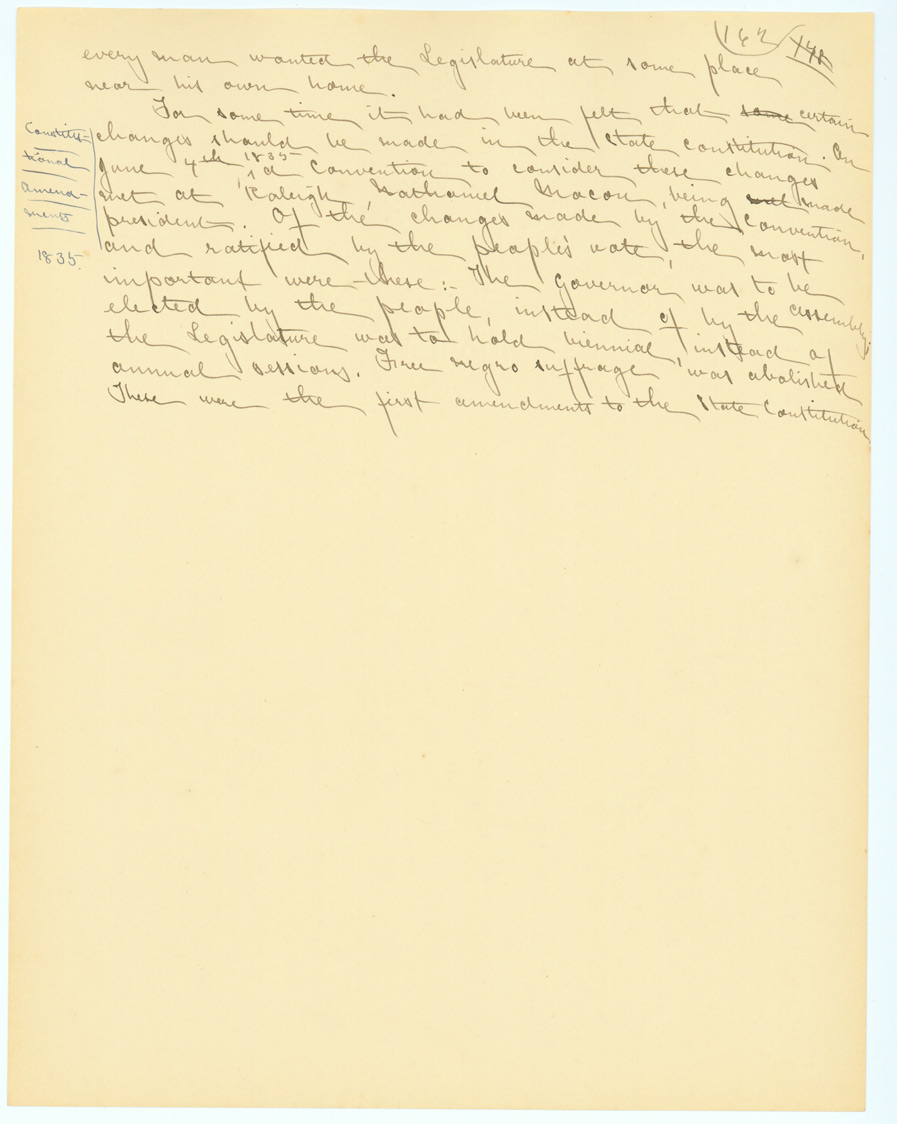 162 148
every man wanted the Legislature at some place
near his own home.
For some time it had been felt that some certain
changes should be made in the State constitution. On
June 4th, 1835 a Convention to consider these changes
met at Raleigh, Nathaniel Macon, being made
president. Of the changes made by the Convention,
and ratified by the people's vote, the most
important were these:- The Governor was to be
elected by the people, instead of by the assembly;
the Legislature was to hold biennial, instead of
annual sessions. Free negro suffrage was abolished
These were the first amendments to the State Constitution
Constitu-
tional
Amend-
ments
1835.